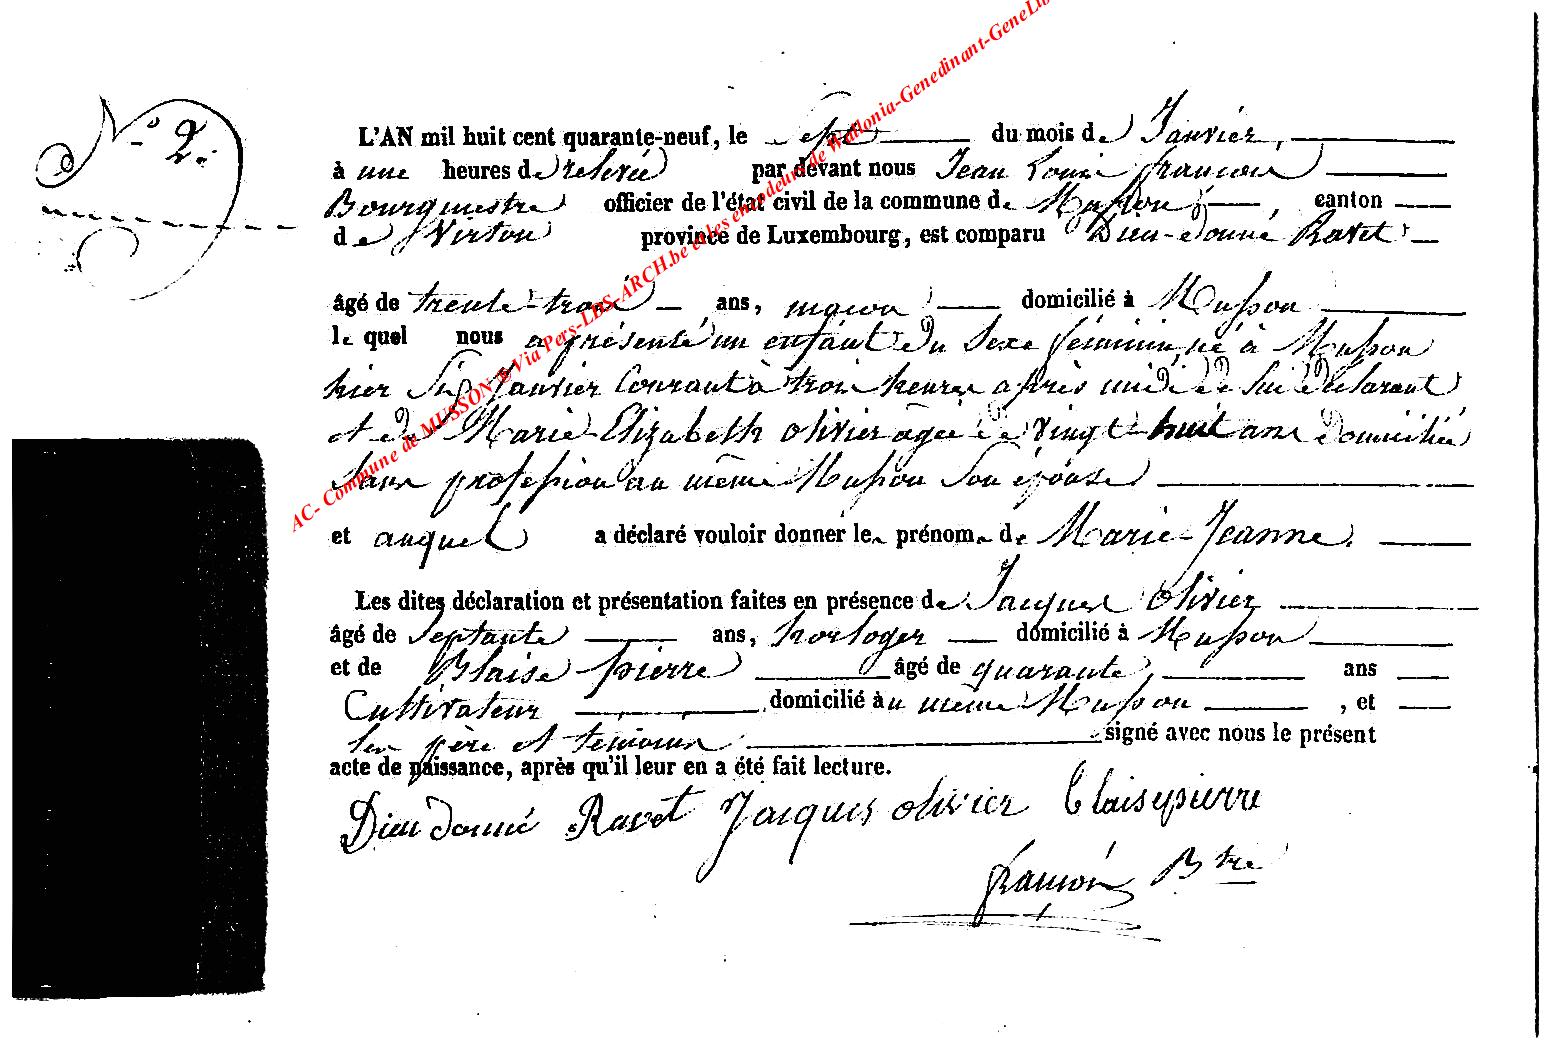 N.° 2.
L'AN mil huit cent quarante-neuf, le Sept du mois de Janvier,
à une heures de relevée par devant nous Jean Louis françois
Bourgmestre officier de l'état civil de la commune de Musson, canton
de Virton province de Luxembourg, est comparu Dieu-donné Ravet
âgé de trente-trois ans, maçon domicilié à Musson
le quel nous a présenté un enfant du Sexe féminin, né à Musson
hier Six Janvier Courant à trois heures après midi de lui déclarant
et de Marie-Elizabeth olivier agée de vingt-huit ans domiciliée
Sans profession au même Musson Son épouse
et auquel a déclaré vouloir donner les prénoms de Marie-Jeanne.
Les dites déclaration et présentation faites en présence de Jacques Olivier
âgé de Septante ans, horloger domicilié à Musson
et de Blaise pierre âgé de quarante, ans
Cultivateur domicilié au même Musson, et
les père et témoins signé avec nous le présent
acte de naissance, après qu'il leur en a été fait lecture.
Dieudonné Ravet Jacques olivier blaisepierre
françois Btre
AC- Commune de MUSSON ® Via Pers-LDS-ARCH.be et les encodeurs de Wallonia-Genedinant-GeneLib